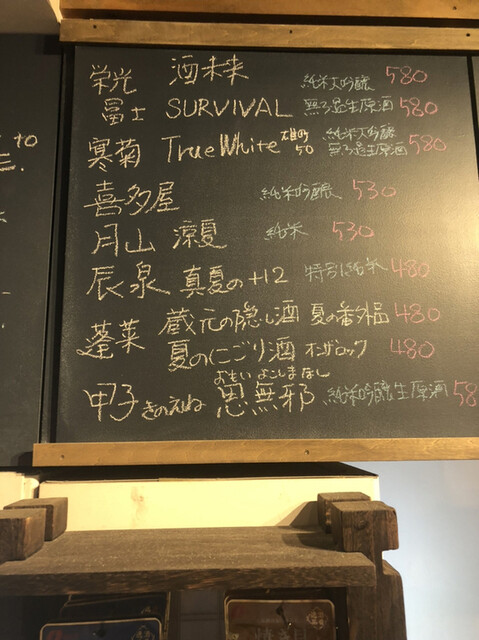 栄光 酒未来 純米大吟醸 580
冨士 SURVIVAL 無ろ過生原酒 580
寒菊 True White 雄町50 純米大吟醸 無ろ過生原酒 580
喜多屋 純米吟醸 530
月山 涼夏 純米 530
辰泉 真夏の+12 特別純米 480
蓬莱 蔵元の隠し酒 夏の番外品 480
夏のにごり酒 オンザロック 480
甲子 きのえね 思無邪 おもいよこしまなし 純米吟醸生原酒 58
to